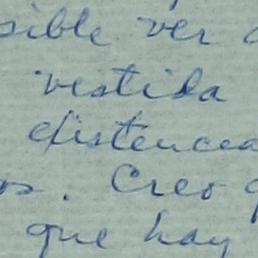 sible ver
vestida
existencia
os. Creo q
que hay